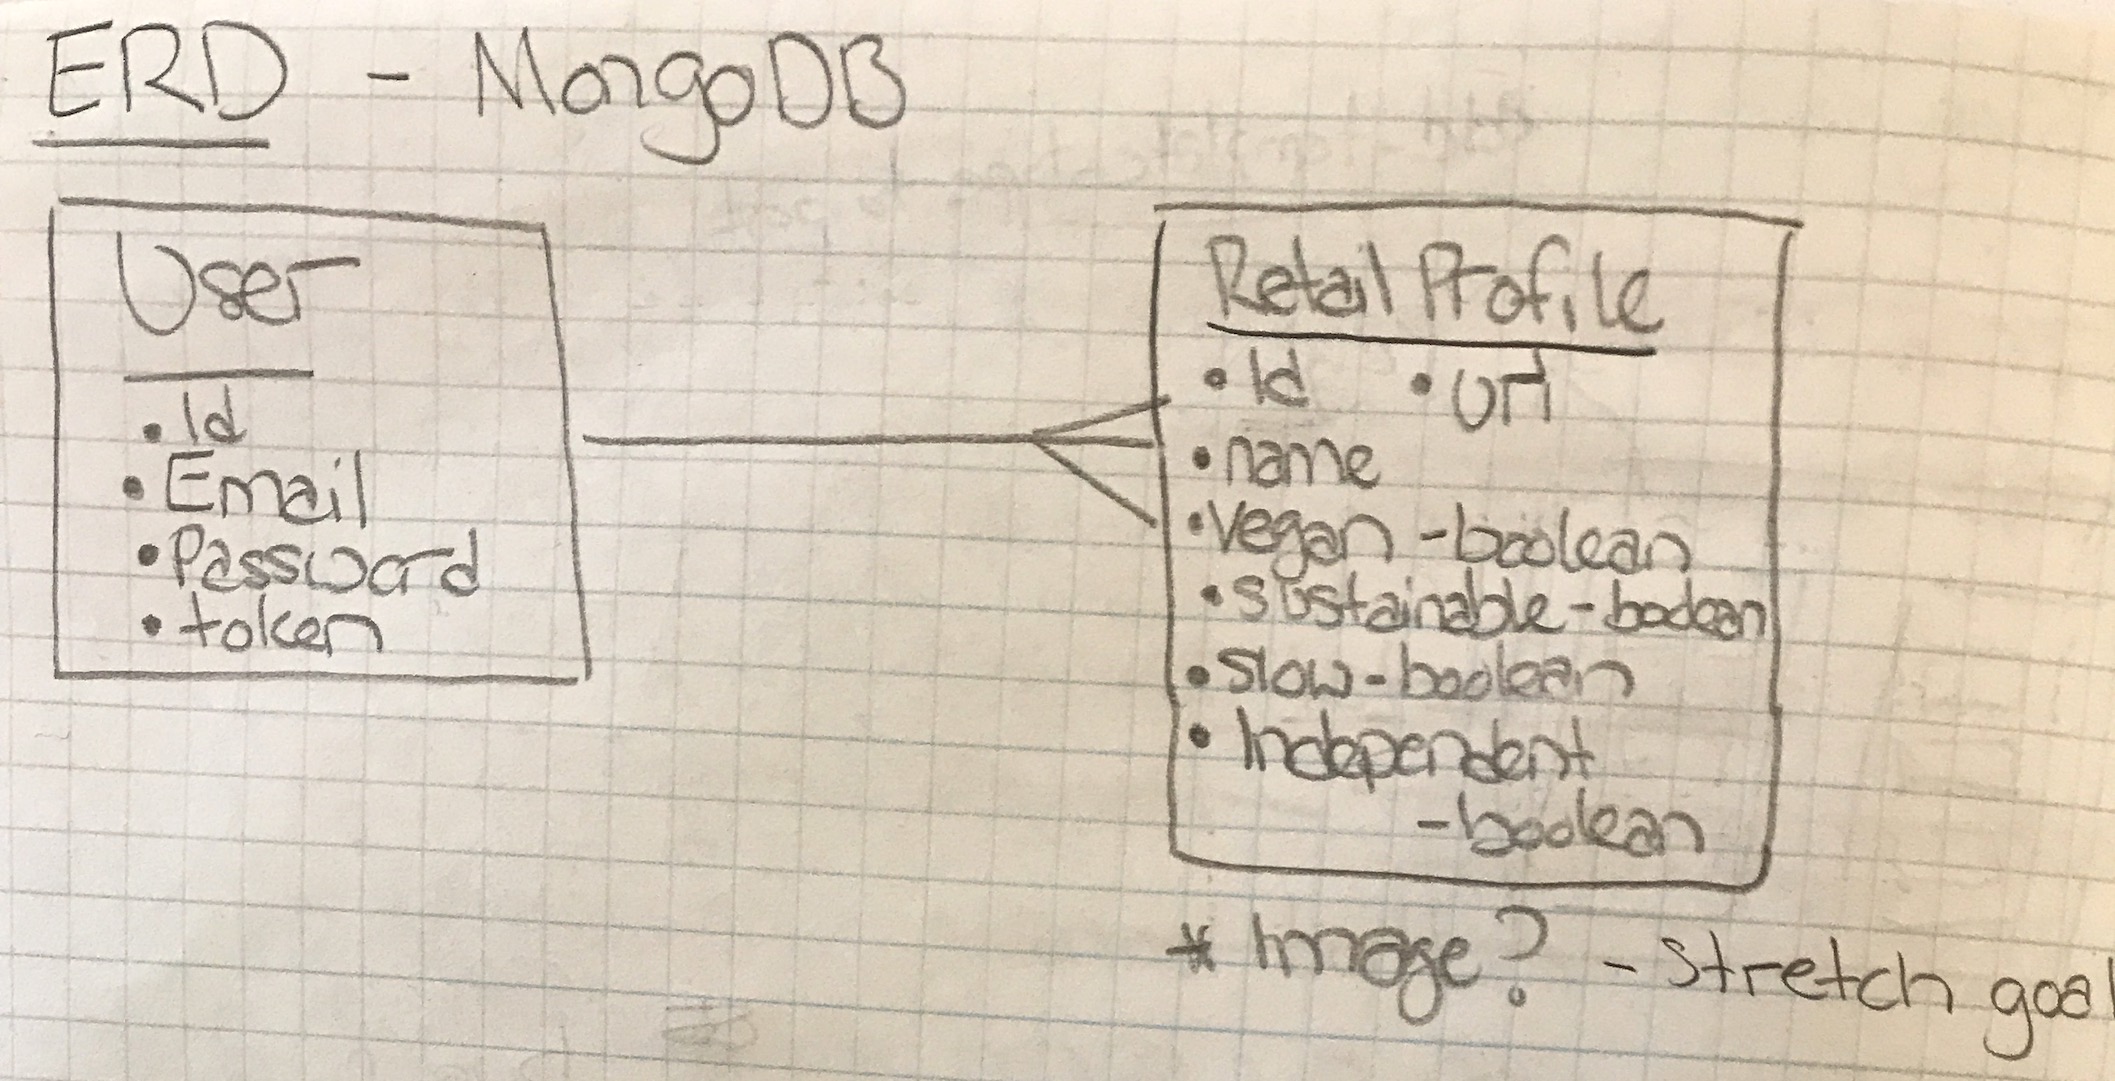 ERD - MongoDB
User
• Id
• Email
• Password
• token
Retail Profile
• Id • url
• name
• Vegan - boolean
• Sustainable - boolean
• Slow - boolean
• Independent
- boolean
* Image? - Stretch goal